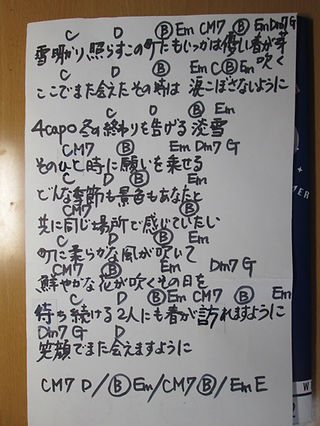 C D Ⓑ Em CM7 Ⓑ Em Dm7 G
雪明かり照らすこの町にもいつかは優しい春が芽吹く
C D Ⓑ Em C Ⓑ Em
ここでまた会えたその時は 涙こぼさないように
C D Ⓑ Em
4capo 冬の終わりを告げる 淡雪
CM7 Ⓑ Em Dm7 G
そのひと時に願いを乗せる
C D Ⓑ Em
どんな季節も景色もあなたと
CM7 Ⓑ
共に同じ場所で感じていたい
C D Ⓑ Em
町に柔らかな風が吹いて
CM7 Ⓑ Em Dm7 G
鮮やかな花が咲くその日を
C D Ⓑ Em CM7 Ⓑ Em
待ち続ける2人にも春が訪れますように
Dm7 G D
笑顔でまた会えますように
CM7 D / Ⓑ Em / CM7 Ⓑ / Em E